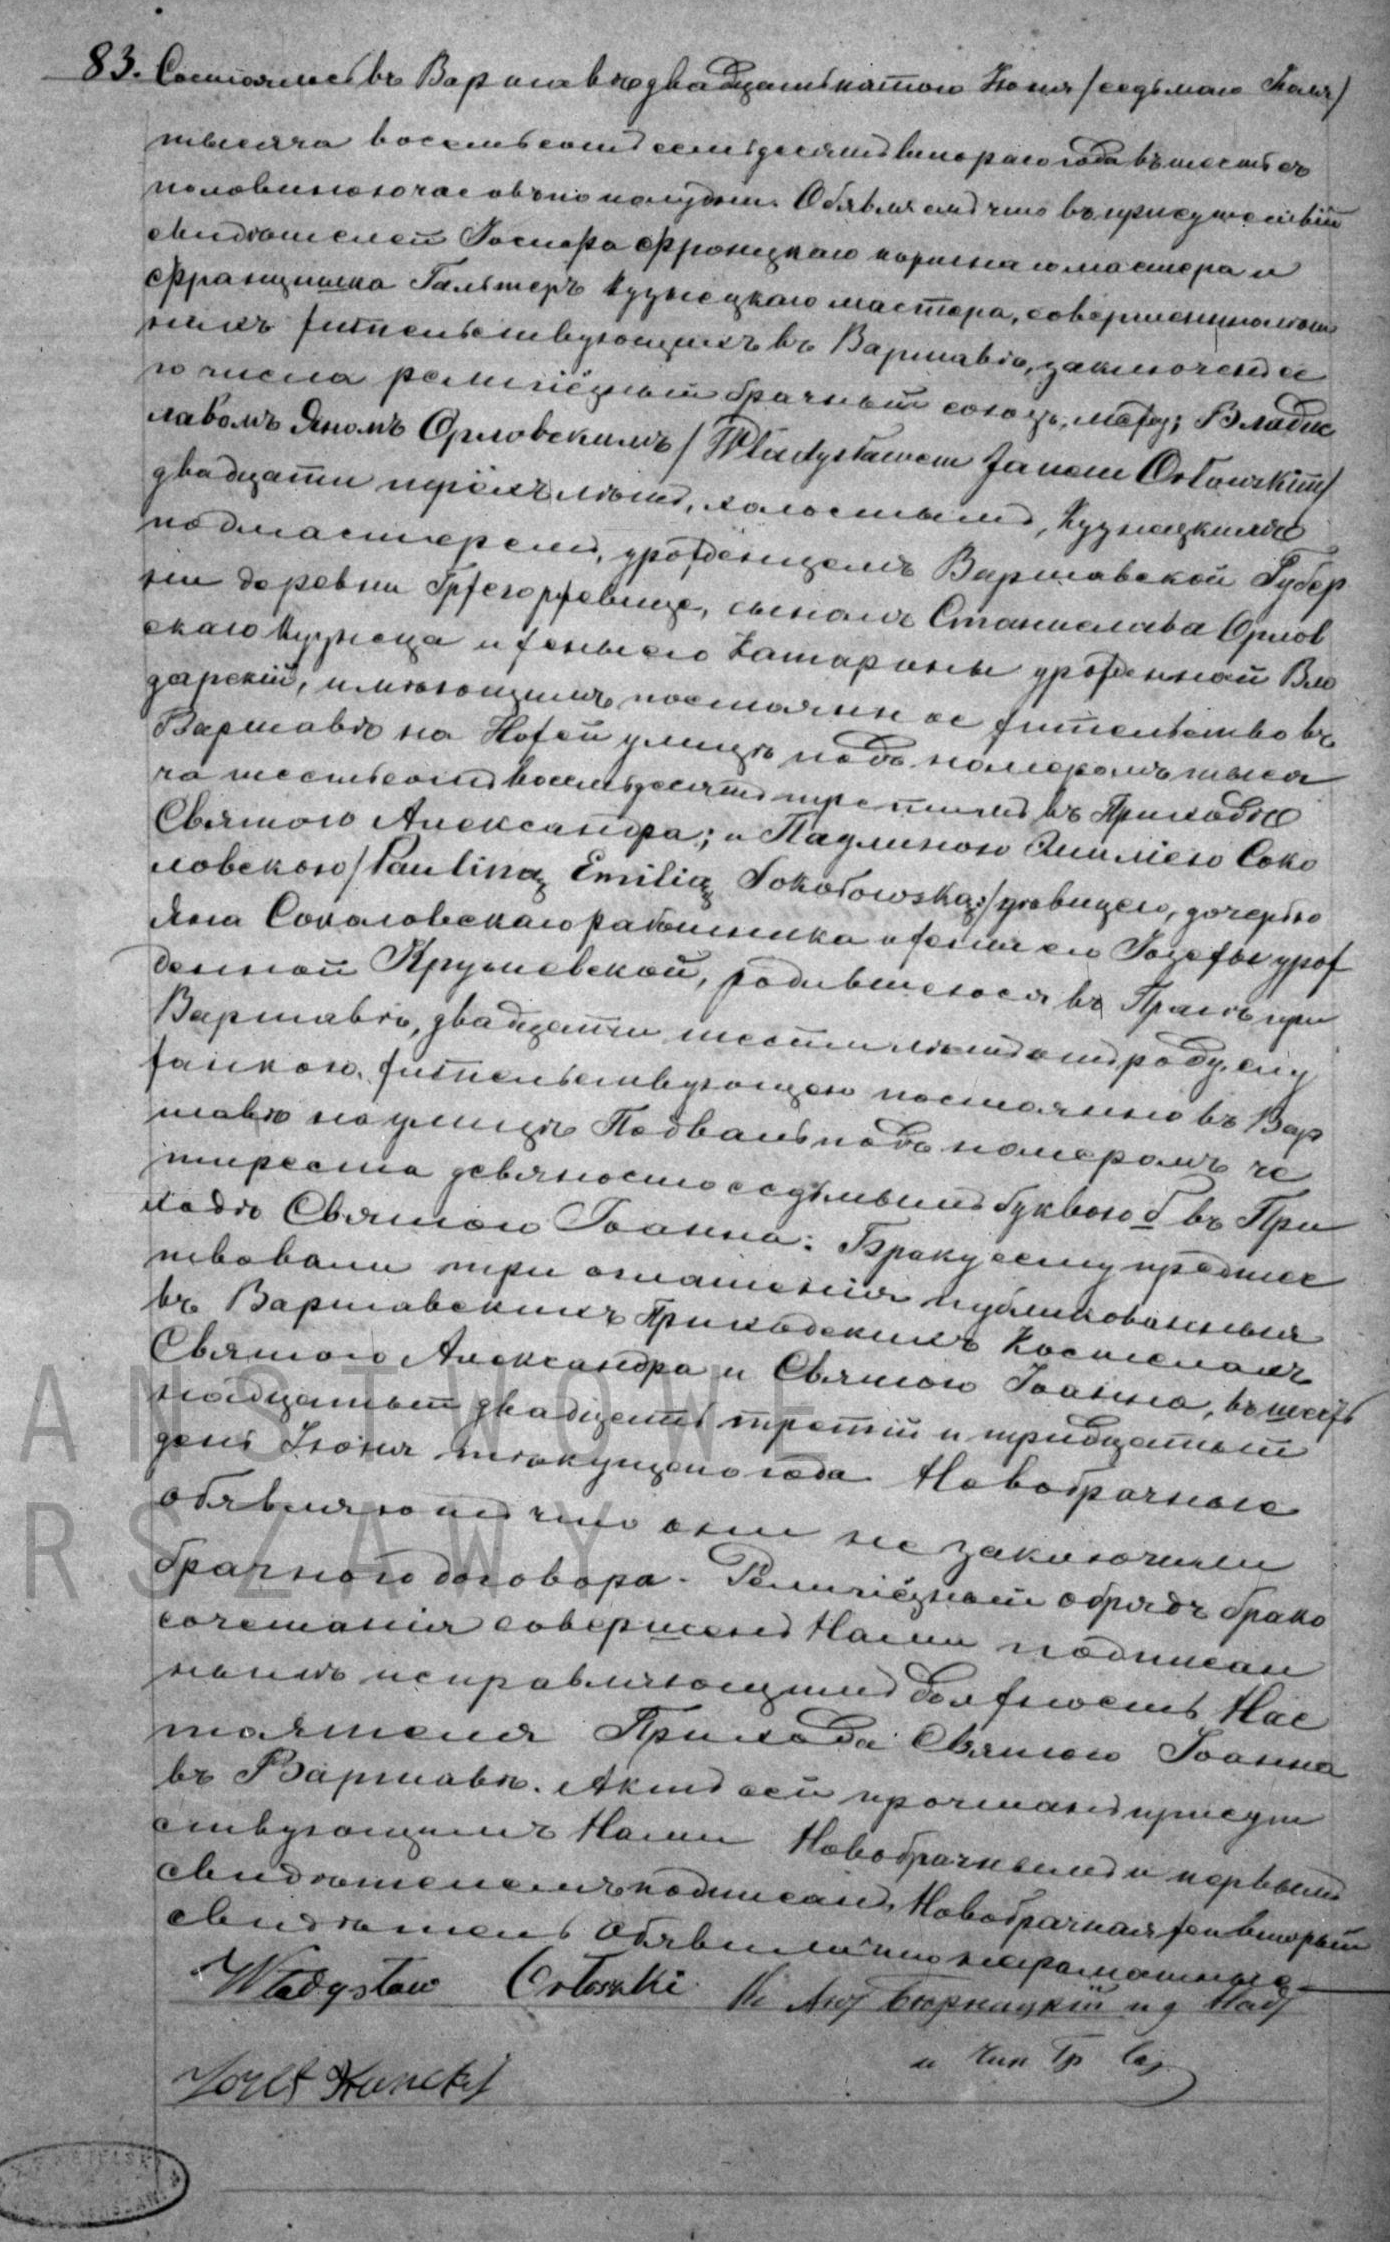 83. Состоялось въ Варшавѣ двадцать пятого Июня /седьмаго Іюля/
тысяча восемьсотъ семьдесятъ втораго года въ шесть съ
половиною часовъ по полудни. Объявляемъ что въ присутствіи
свидѣтелей Іосифа мастера и
Францишка Гальтеръ Кузнецкаго мастера, совершеннолѣт
нихъ жительствующихъ въ Варшавѣ, заключенъ се
го числа религіозный брачный союзъ, между Владис
лавомъ Яномъ Орловскимъ /Władysławem Janem Orłowskim/
двадцати трёхъ лѣтъ, холостымъ, Кузнецкимъ
подмастеремъ, урожденцемъ Варшавской Губер
ніи деревни Гржегоржевице, сыномъ Станислава Орлов
скаго Кузнеца и жены его Катарины урожденной Вло
дарской, имѣющимъ постоянное жительство въ
Варшавѣ на Новей улицѣ подъ номеромъ тыся
ча шестьсотъ восемьдесятъ третьимъ въ Приходѣ
Святого Александра; и Паулиною Эмиліею Соко
ловскою /Pauliną Emilią Sokołowską:/ дѣвицею, дочерью
Яна Соколовскаго работника и жены его Іозефы урож
денной Крушевской, родившеюся въ Прагѣ при
Варшавѣ, двадцати шести лѣтъ отъ роду, слу
жанкою, жительствующею постоянно въ Вар
шавѣ на улицѣ Подваль подъ номеромъ че
тыреста девяносто седьмымъ буквою б въ При
ходѣ Святого Іоанна: Браку сему предшес
твовали три оглашенія публикованныя
въ Варшавскихъ Приходскихъ Костелахъ
Святого Александра и Святого Іоанна, въ шест
надцатый двадцать третій и тридцатый
день Июня текущего года. Новобрачные
объявляютъ что они не заключили
брачного договора. Религіозный обрядъ брако
сочетанія совершенъ Нами подписан
нымъ исправляющимъ должность Нас
тоятеля Прихода Святого Іоанна
въ Варшавѣ. Актъ сей прочитанъ присут
ствующимъ Нами Новобрачнымъ и первымъ
свидѣтелемъ подписанъ, Новобрачная же и вторый
свидѣтель объявили что неграмотные
Władysław Orłowski Кс Бернацкій и д Наст
и Чин Гр Сос
Józef